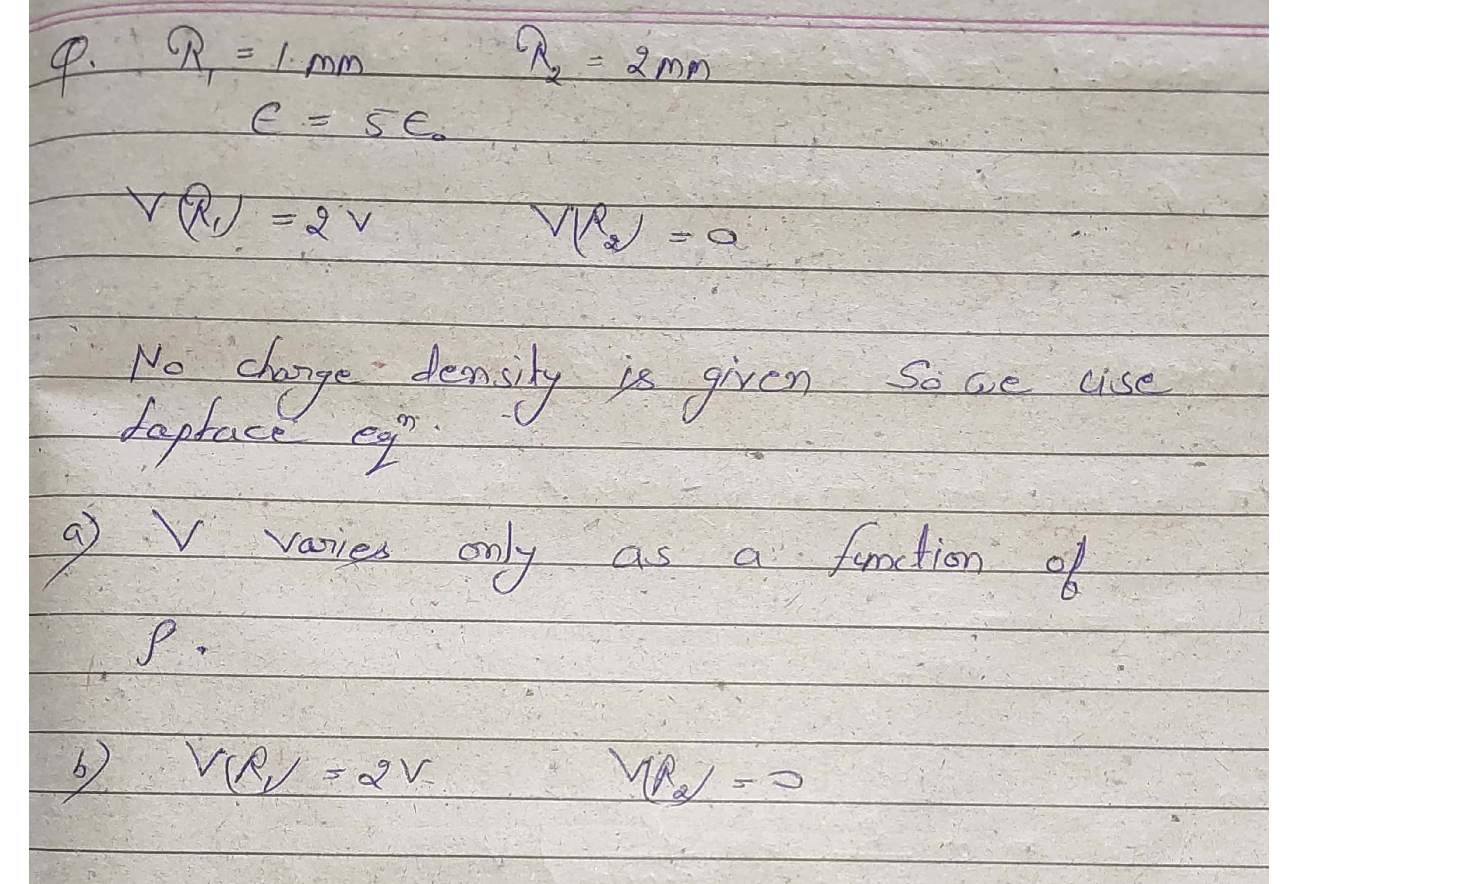 Q. R₁ = 1 mm R₂ = 2 mm
ϵ = 5ϵ₀
V(R₁) = 2 V V(R₂) = 0
No charge density is given So we use
Laplace eqⁿ.
a) V varies only as a function of
ρ.
b) V(R₁) = 2 V V(R₂) = 0